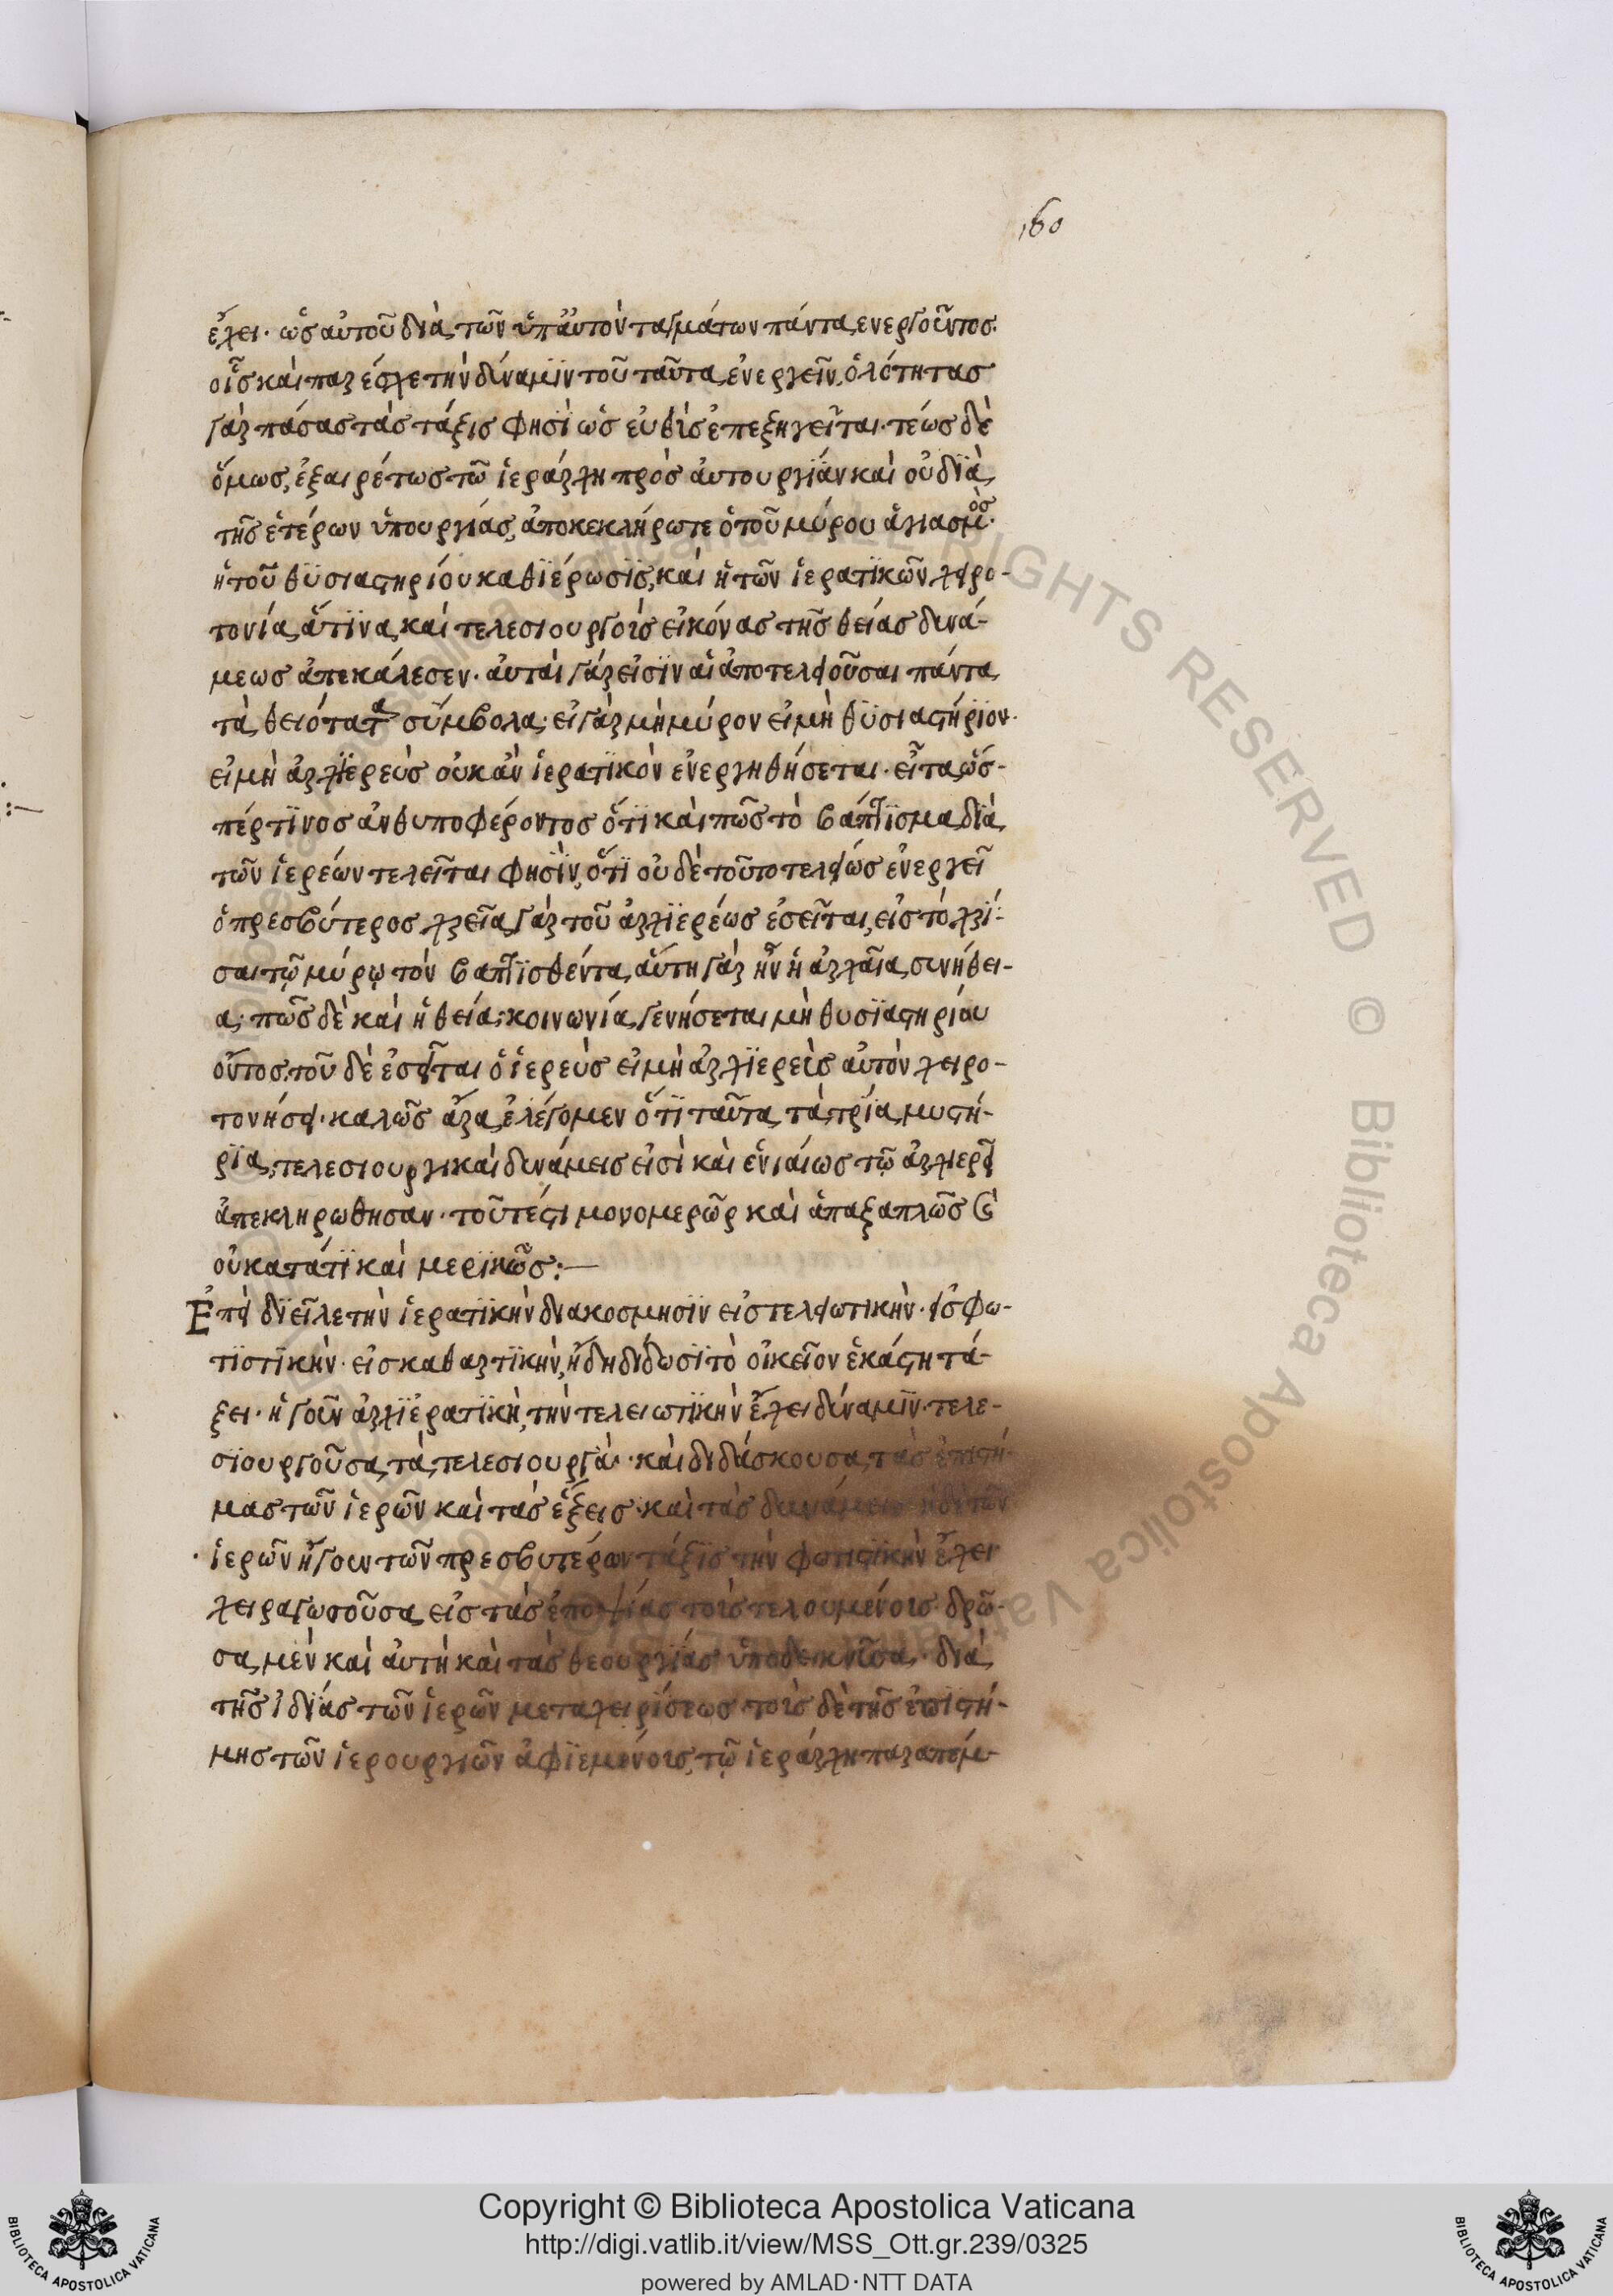 160
ἔχει· ὡς αὐτοῦ διὰ τῶν ὑπ᾽ αὐτὸν ταγμάτων πάντα ἐνεργοῦντος.
οἷς καὶ παρέσχε τὴν δύναμϊν τοῦ ταῦτα ἐνεργεῖν, ὁλότητας
γὰρ πάσας τὰς τάξις φησὶ ὡς εὐθὺς ἐπεξηγεῖται· τέως δὲ
ὅμως, ἐξαιρέτως τῶ ἱεράρχη πρὸς αὐτουργίαν καὶ οὐ διὰ
τῆς ἑτέρων ὑπουργίας, ἀποκεκλήρωτε ὁ τοῦ μύρου ἁγιασμὸς·
ἡ τοῦ θϋσιαστηρίου καθϊέρωσϊς, καὶ ἡ τῶν ἱερατϊκῶν χειρο-
τονία, ἅτϊνα καὶ τελεσιουργοὶς εἰκόνας τῆς θείας δυνά-
μεως ἀπεκάλεσεν· ἀυταὶ γάρ εἰσϊν αἱ ἀποτελειοῦσαι πάντα
τὰ θειότατα σύμβολα· εἰ γὰρ μὴ μύρον εἰ μὴ θϋσιαστήρϊον·
εἰ μὴ ἀρχϊερεὺς οὐκ ἂν ἱερατϊκὸν ἐνεργηθήσεται· εἶτα ὥσ-
πέρ τϊνος ἀνθυποφέροντος ὅτι καὶ πῶς τὸ βάπτϊσμα διὰ
τῶν ἱερέων τελεῖται φησὶν, ὅτϊ οὐδὲ τοῦτο τελείως ἐνεργεῖ
ὁ πρεσβύτερος χρεῖα γὰρ τοῦ ἀρχϊερέως ἐσεῖται, εἰς τὸ χρί-
σαι τῷ μύρῳ τὸν βαπτϊσθέντα, αὕτη γὰρ ἦν ἡ ἀρχαῖα συνήθει-
α· πῶς δὲ καὶ ἡ θεία κοινωνία γενήσεται μὴ θυσϊαστηρίου
ὄντος, τοῦ δὲ ἐσεῖται ὁ ἱερεὺς εἰ μὴ ἀρχϊερεὺς αὐτὸν χειρο-
τονήσει· καλῶς ἄρα ἐλέγομεν ὅτϊ ταῦτα τὰ τρία μυστή-
ρϊα, τελεσιουργικαὶ δυνάμεις εἰσὶ καὶ ἑνιαίως τῷ ἀρχιερεῖ
ἀπεκληρωθησαν· τοῦτέστι μονομερῶς καὶ ἁπαξαπλῶς καὶ
οὐ κατάτϊ καὶ μερϊκῶς:—
Ἐπεὶ δϊεῖλε τὴν ἱερατϊκὴν διακοσμησϊν εἰς τελειωτικὴν· εἰς φω-
τϊστϊκὴν· εἰς καθαρτϊκὴν, ἤδη δίδωσϊ τὸ οἰκεῖον ἑκάστη τά-
ξει· ἡ γοῦν ἀρχϊερατϊκὴ, τὴν τελειωτϊκὴν ἔχει δύναμϊν· τελε-
σϊουργοῦσα τὰ τελεσιουργὰ· καὶ διδάσκουσα τὰς ἐπιστή-
μας τῶν ἱερῶν καὶ τὰς ἕξεις· καὶ τὰς δυνάμεις ἡ δὲ τῶν
ἱερῶν ἤγουν τῶν πρεσβυτέρων τάξϊς τὴν φωτιστϊκὴν ἔχει
χειραγωγοῦσα εἰς τὰς ἐποψίας τοὺς τελουμένους δρῶ-
σα μὲν καὶ ἀυτὴ καὶ τὰς θεουργίας ὑποδεικνῦσα· διὰ
τῆς ἰδίας τῶν ἱερῶν μεταχειρίσεως τοὺς δὲ τῆς ἐπϊστή-
μης τῶν ἱερουργιῶν ἀφϊεμένους, τῷ ἱεράρχη παραπέμ-
Copyright © Biblioteca Apostolica Vaticana
http://digi.vatlib.it/view/MSS_Ott.gr.239/0325
powered by AMLAD·NTT DATA